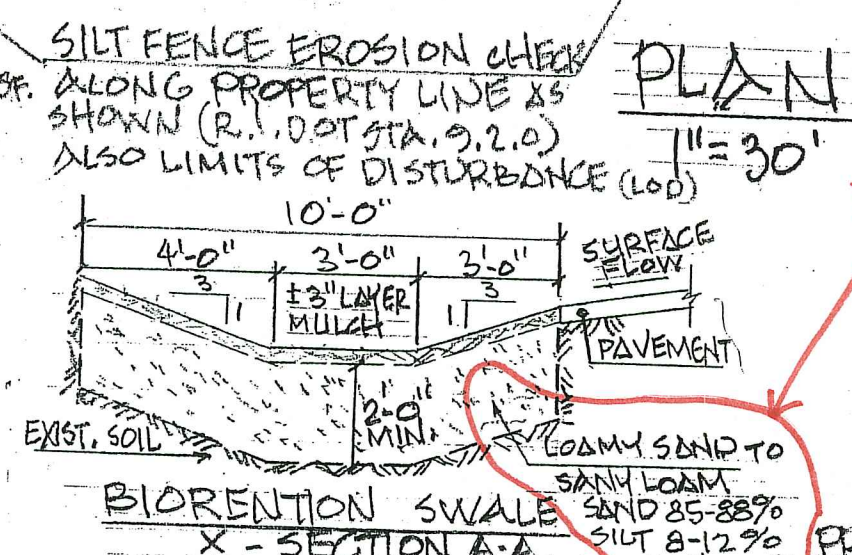 SILT FENCE EROSION CHECK
SF. ALONG PROPERTY LINE AS
SHOWN (R.I. DOT STA. 9.2.0)
ALSO LIMITS OF DISTURBANCE (LOD)
PLAN
1"=30'
10'-0"
4'-0" 3'-0" 3'-0"
SURFACE
FLOW
3
1
±3" LAYER
MULCH
3
1
PAVEMENT
2'-0"
MIN.
EXIST. SOIL
LOAMY SAND TO
SANY LOAM
SAND 85-88%
SILT 8-12%
BIORENTION SWALE
X - SECTION A-A